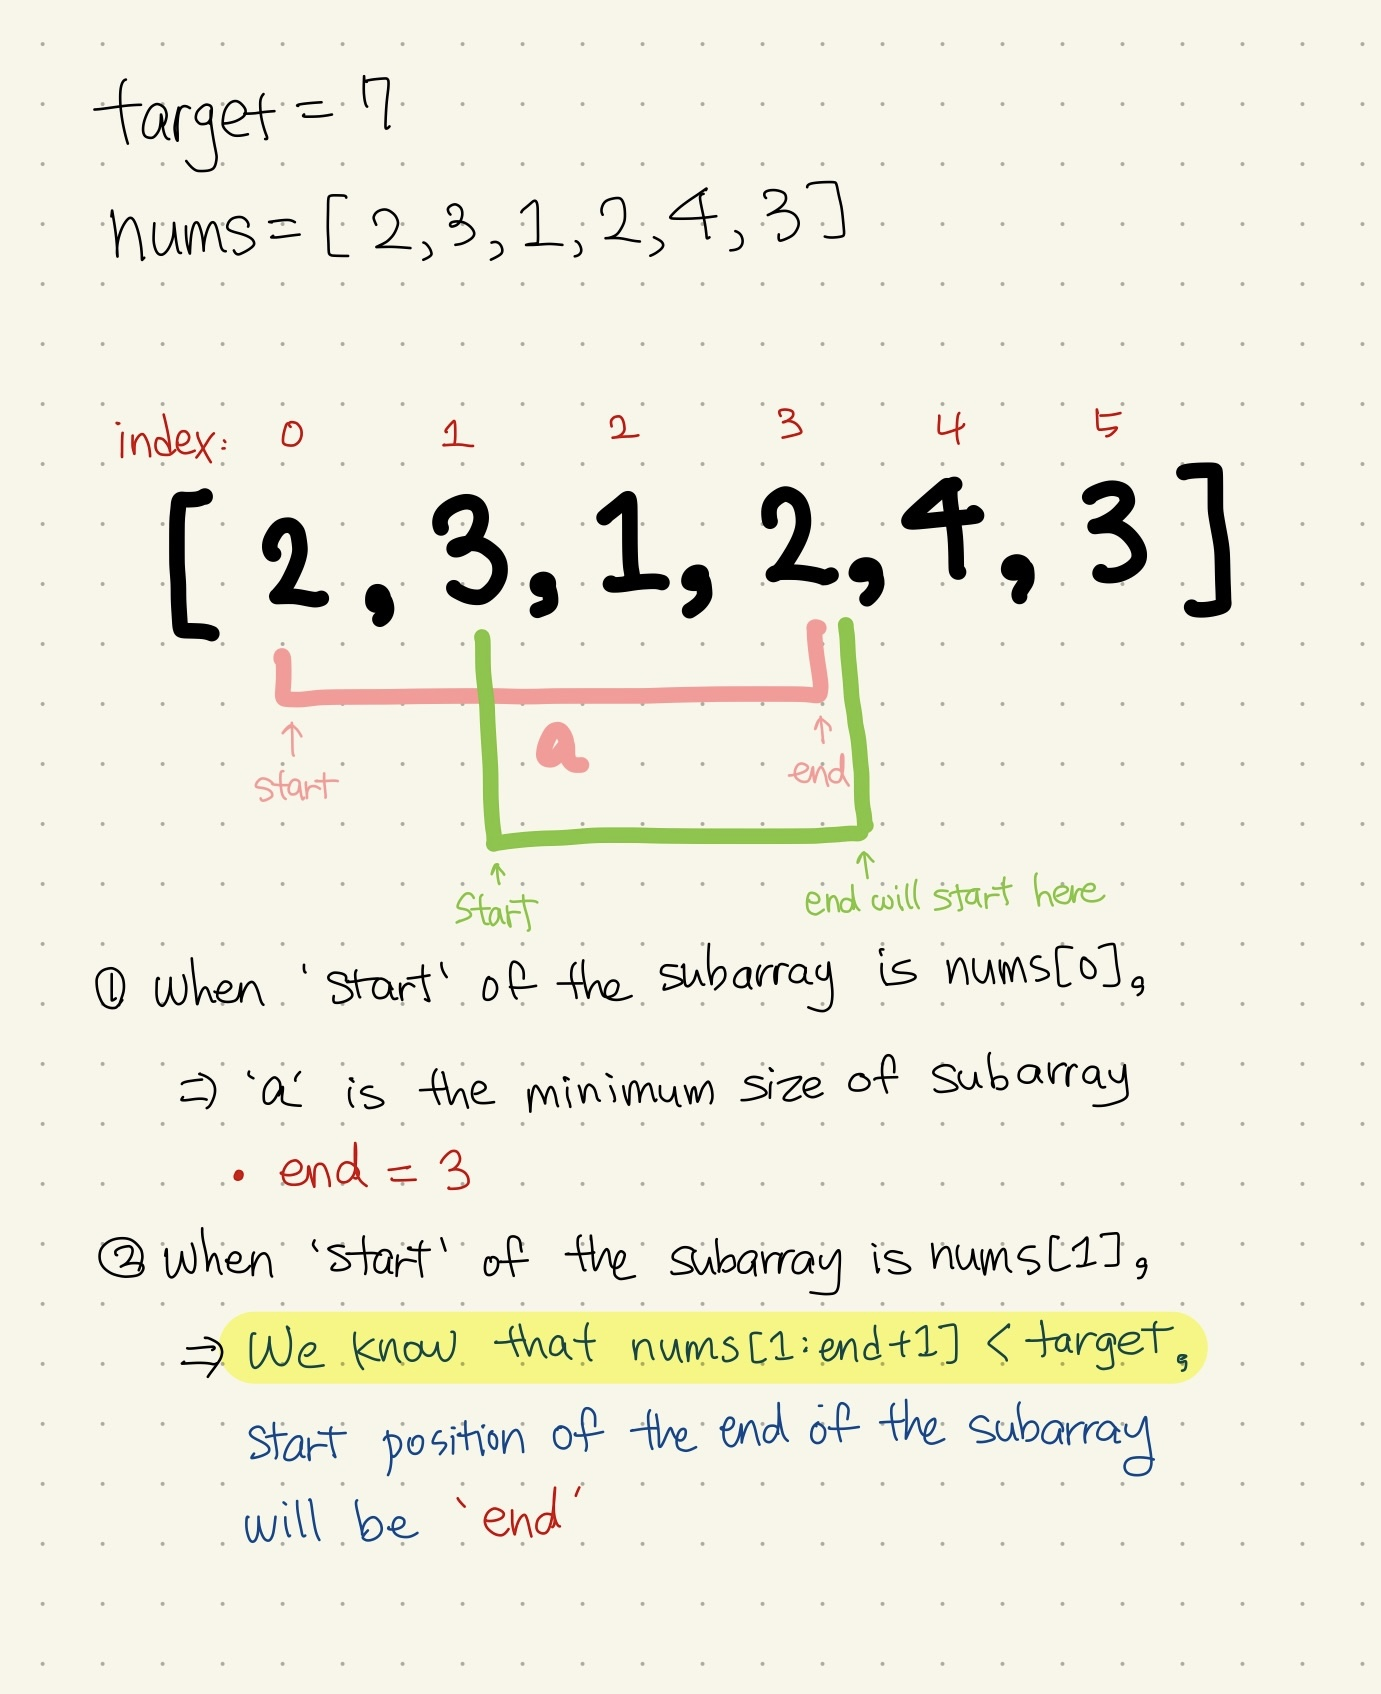 target = 7
nums = [ 2, 3, 1, 2, 4, 3 ]
index: 0 1 2 3 4 5
[ 2, 3, 1, 2, 4, 3 ]
a
start end
start end will start here
① When 'start' of the subarray is nums[0],
⇒ 'a' is the minimum size of subarray
• end = 3
② When 'start' of the subarray is nums[1],
⇒ We know that nums[1:end+1] < target,
start position of the end of the subarray
will be 'end'